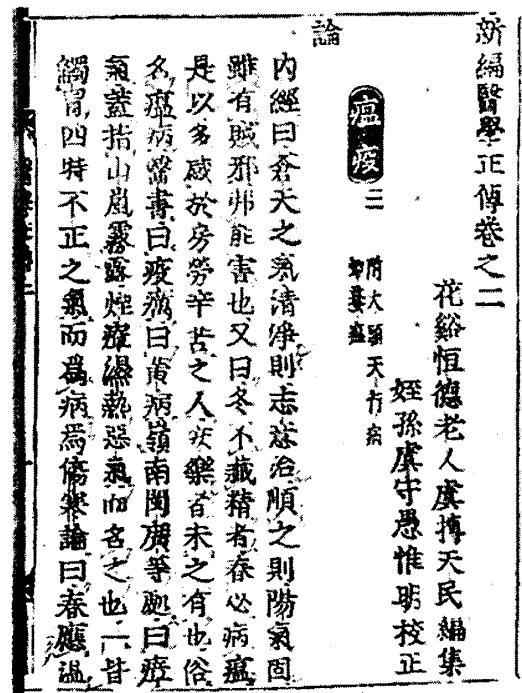 新編醫學正傳卷之二
花谿恒德老人虞摶天民編集
姪孫虞守愚惟明校正
瘟疫二
附大頭天行病
論
内經曰蒼天之氣清淨則志意治順之則陽氣固
雖有賊邪弗能害也又曰冬不藏精者春必病瘟
是以多感於房勞辛苦之人安樂者未之有也俗
名瘟病醫書曰疫癘曰黄病嶺南閩廣等處曰瘴
氣蓋指山嵐霧露烟瘴濕熱惡氣而名之也一皆
觸冒四時不正之氣而爲病焉傷寒論曰春應温